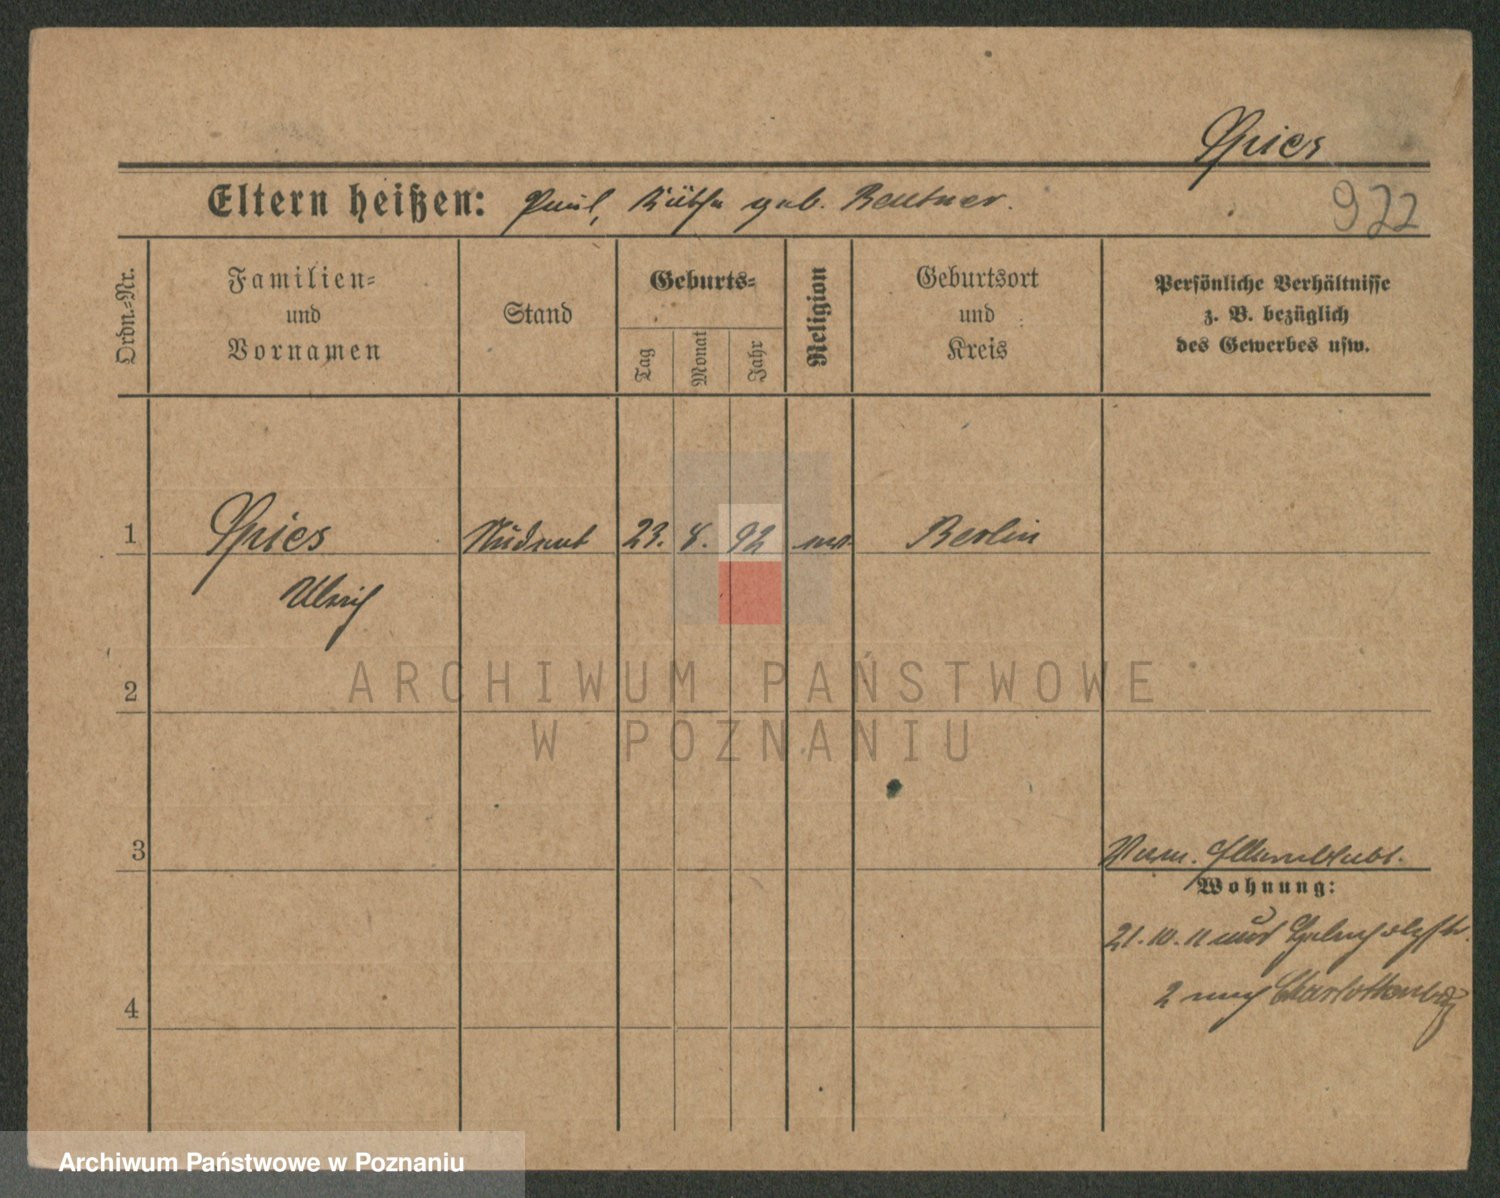 Spies
Eltern heißen: Paul, Käthe geb. Rentner.
922
Ordn.-Nr.
Familien-
und
Vornamen
Stand
Geburts-
Tag
Monat
Jahr
Religion
Geburtsort
und
Kreis
Persönliche Verhältnisse
z. B. bezüglich
des Gewerbes usw.
1 Spies Student 23. 8. 92 ev. Berlin
Ulrich
2
ARCHIWUM PAŃSTWOWE
W POZNANIU
3
Wohnung:
21. 10. 11
4
2 nach Charlottenbg
Archiwum Państwowe w Poznaniu